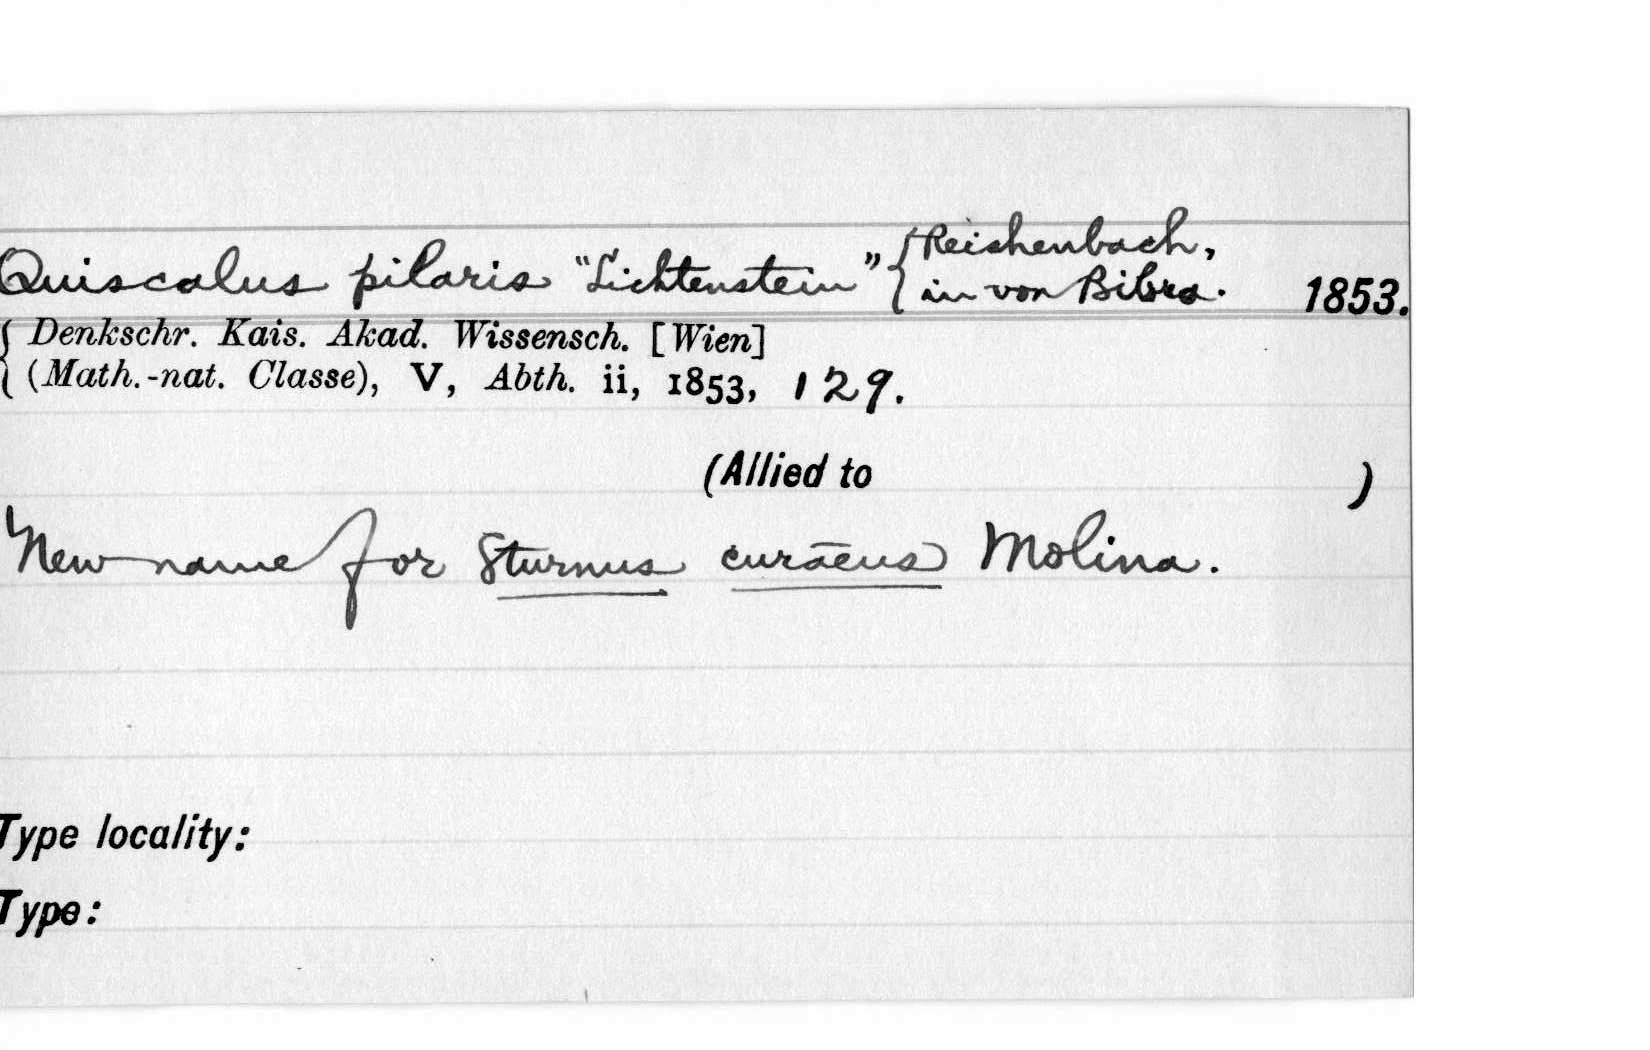 Quiscalus pilaris "Lichtenstein" { Reichenbach,
in von Bibra. 1853.
{ Denkschr. Kais. Akad. Wissensch. [Wien]
(Math.-nat. Classe), V, Abth. ii, 1853, 129.
(Allied to )
New name for Sturnus curaeus Molina.
Type locality:
Type: